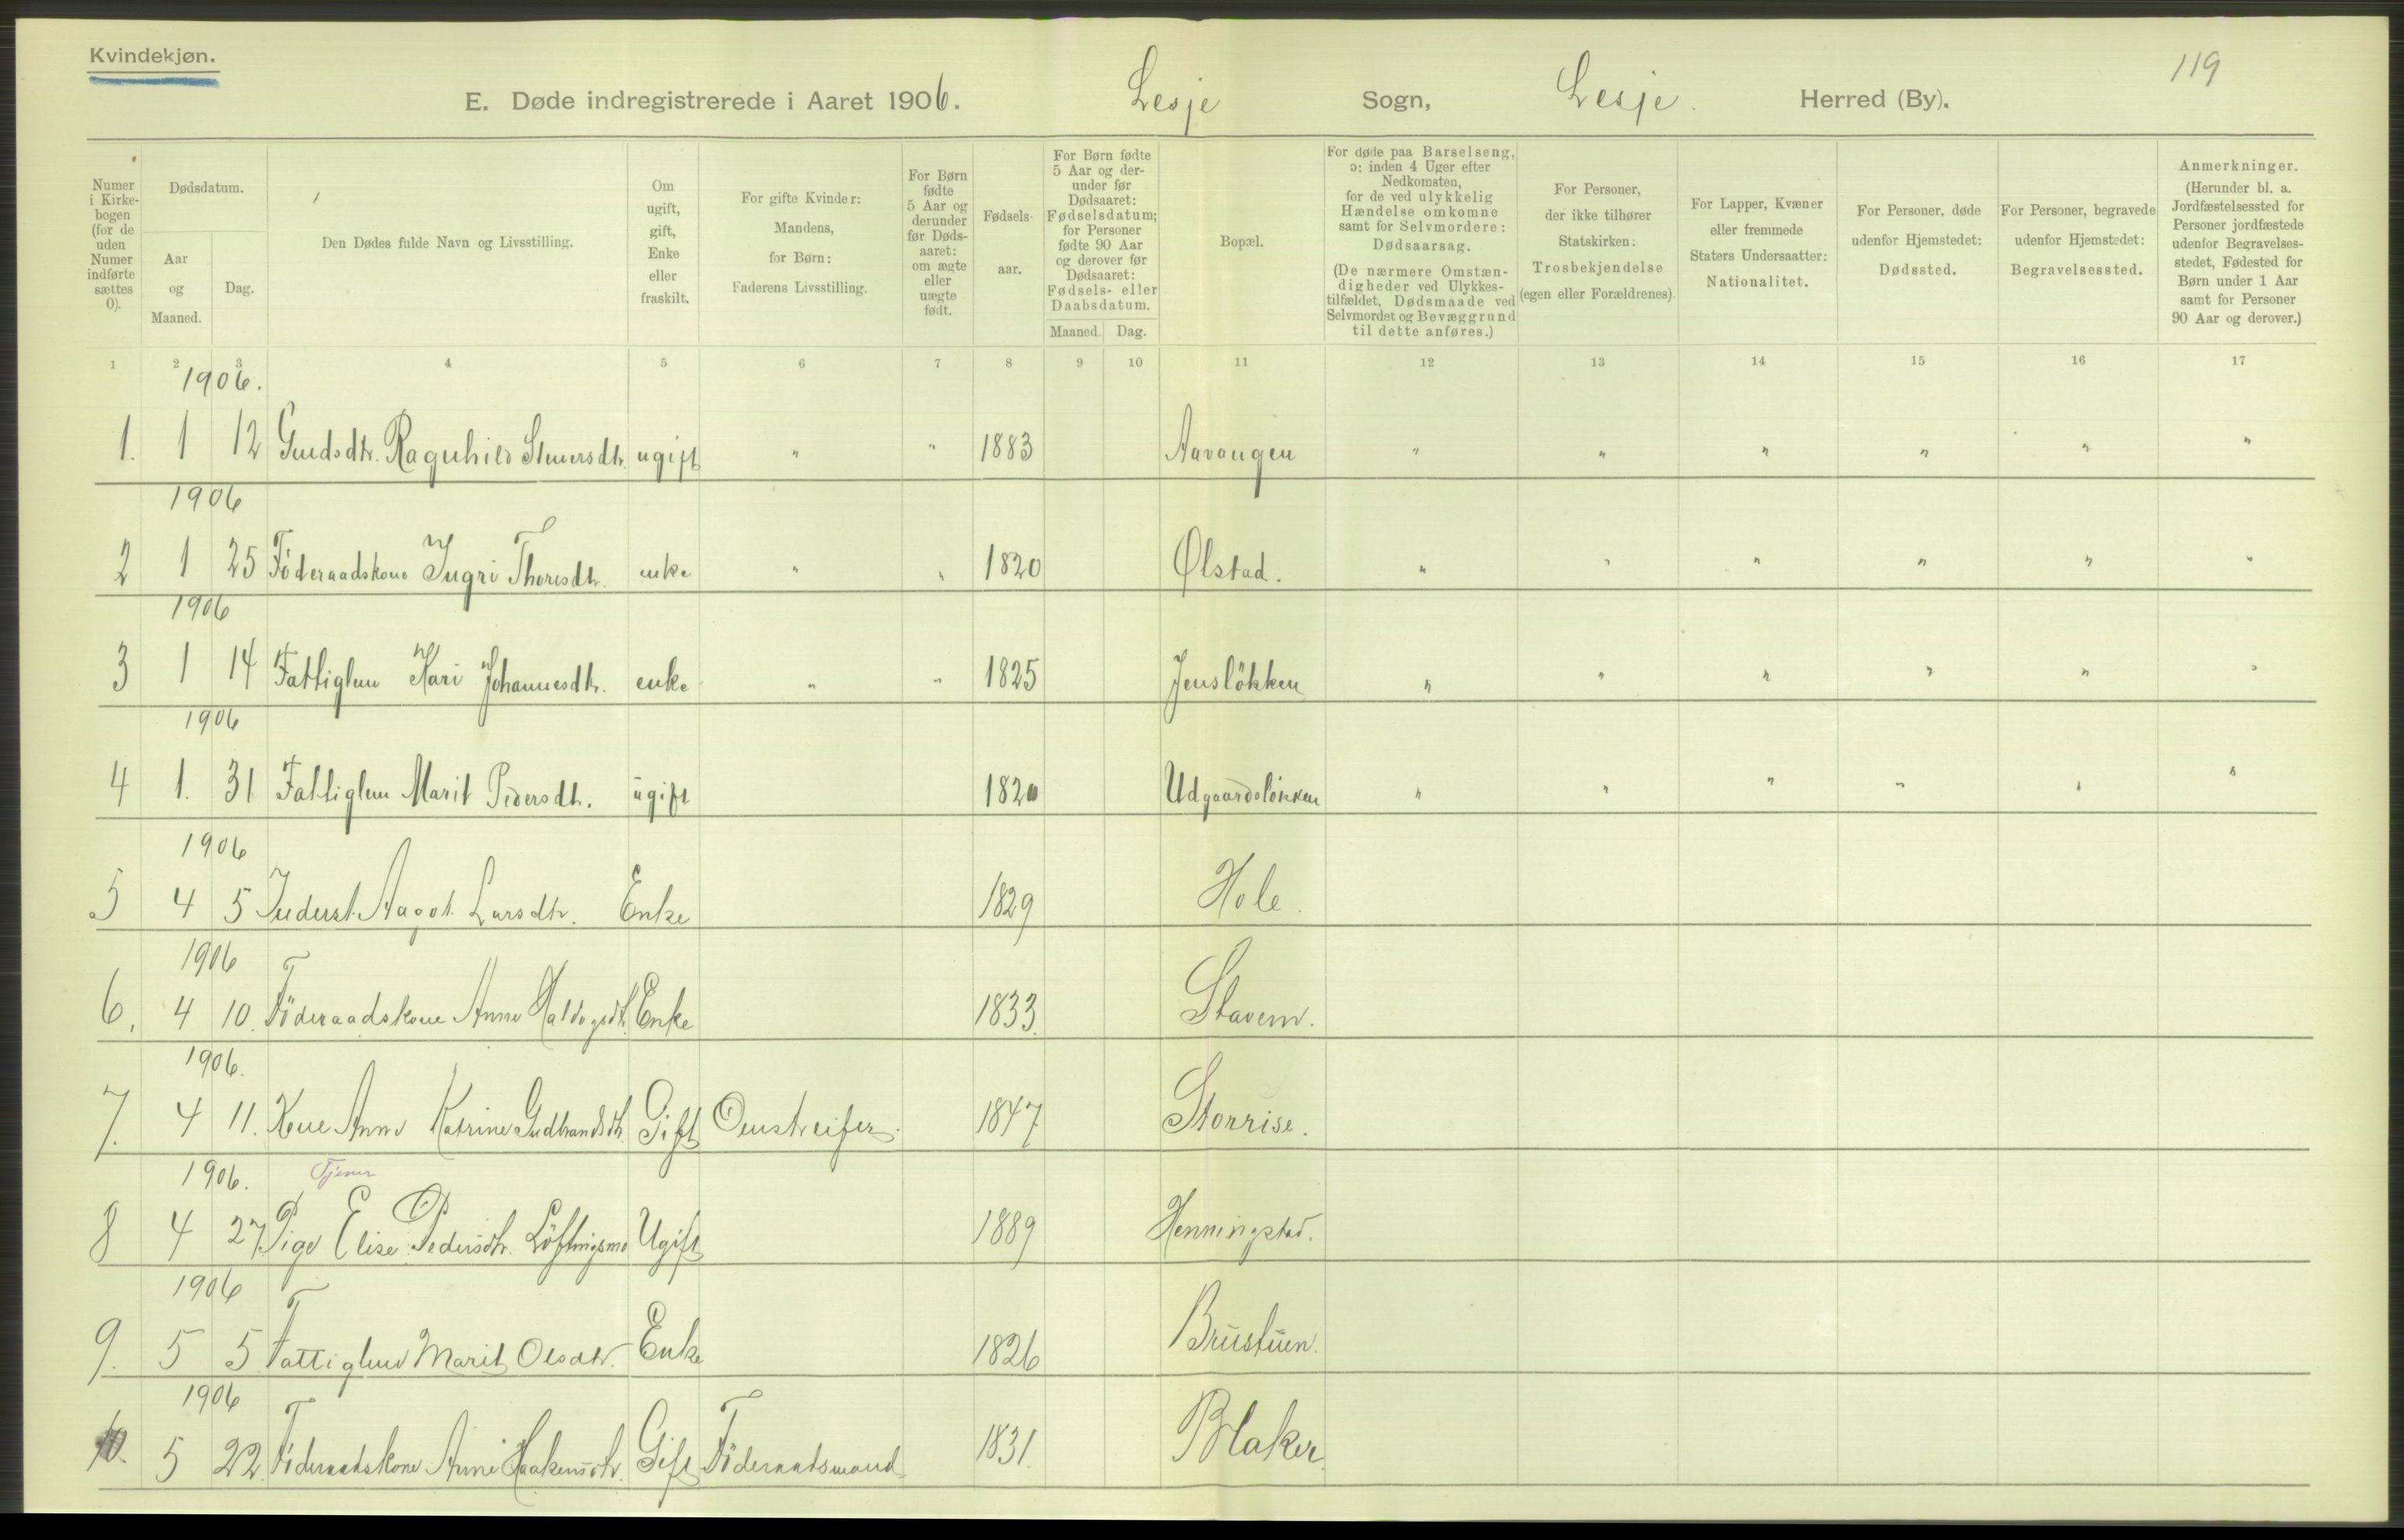 Kvindekjøn.
119
E. Døde indregistrerede i Aaret 1906. Lesje Sogn, Lesje. Herred (By).
Numer i Kirke-bogen (for de uden Numer indførte sættes 0).
Dødsdatum.
Aar og Maaned.
Dag.
Den Dødes fulde Navn og Livsstilling.
Om ugift, gift, Enke eller fraskilt.
For gifte Kvinder: Mandens, for Børn: Faderens Livsstilling.
For Børn fødte 5 Aar og derunder før Døds-aaret: om ægte eller uægte født.
Fødsels-aar.
For Børn fødte 5 Aar og der-under før Dødsaaret: Fødselsdatum; for Personer fødte 90 Aar og derover før Dødsaaret: Fødsels- eller Daabsdatum.
Maaned. Dag.
Bopæl.
For døde paa Barselseng, ɔ: inden 4 Uger efter Nedkomsten, for de ved ulykkelig Hændelse omkomne samt for Selvmordere: Dødsaarsag. (De nærmere Omstæn-digheder ved Ulykkes-tilfældet, Dødsmaade ved Selvmordet og Bevæggrund til dette anføres.)
For Personer, der ikke tilhører Statskirken: Trosbekjendelse (egen eller Forældrenes).
For Lapper, Kvæner eller fremmede Staters Undersaatter: Nationalitet.
For Personer, døde udenfor Hjemstedet: Dødssted.
For Personer, begravede udenfor Hjemstedet: Begravelsessted.
Anmerkninger. (Herunder bl. a. Jordfæstelsessted for Personer jordfæstede udenfor Begravelses-stedet, Fødested for Børn under 1 Aar samt for Personer 90 Aar og derover.)
1 2 3 4 5 6 7 8 9 10 11 12 13 14 15 16 17
1906.
1. 1 12 Ragnhild ugift " " 1883 " " " " " "
1906
2 1 25 Føderaadskone Ingri Thoresdtr. enke " " 1820 Ølstad. " " " " " "
1906
3 1 14 Fattiglem Kari Johannesdtr. enke " " 1825 Jensløkken " " " " " "
1906
4 1. 31 Fattiglem Marit Pedersdtr. ugift 1820 Udgaardsløkken " " " " " "
1906
5 4 5 Inderst. Aagot Larsdtr. Enke 1829 Hole.
1906
6. 4 10. Føderaadskone Anne Enke 1833. Stavem.
1906.
7. 4 11. Kone Anne Katrine Gudbrandsdtr. Gift 1847 Storrise.
1906. Tjener
8 4 27 Pige Elise Pedersdtr. Løftingsmo Ugift 1889 Henningstad.
1906
9. 5 5 Fattiglem Marit Olsdtr. Enke 1826 Brustuen.
1906
10. 5 22. Føderaadskone Anne Haakensdtr. Gift Føderaadsmand 1831. Blaker.